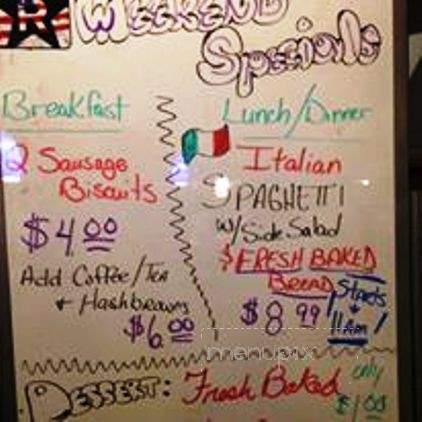 R
WEEKEND
Specials
Breakfast
2 Sausage
Biscuits
$4.00
Add Coffee/Tea
+ Hashbrowns
$6.00
Lunch/Dinner
Italian
SPAGHETTI
w/ Side Salad
$ FRESH BAKED
BREAD
$8.99
Starts
11am!
menupix
DESSERT: Fresh Baked
only
$1.00